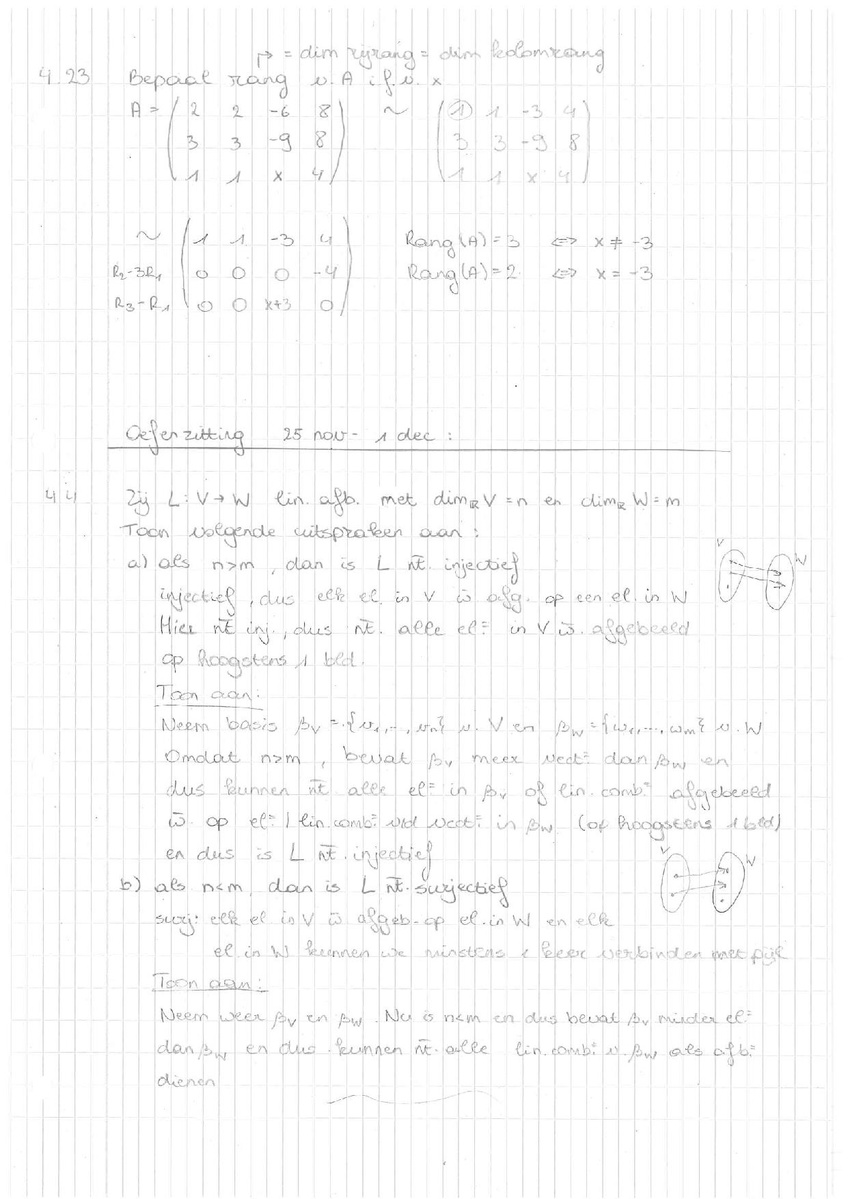 ↱ = dim rijrang = dim kolomrang
4.23 Bepaal rang v. A i.f.v. x
A = ( 2 2 -6 8 ) ~ ( 1 1 -3 4 )
( 3 3 -9 8 ) ( 3 3 -9 8 )
( 1 1 x 4 ) ( 1 1 x 4 )
~ ( 1 1 -3 4 ) Rang(A) = 3 <=> x ≠ -3
R2-3R1 ( 0 0 0 -4 ) Rang(A) = 2 <=> x = -3
R3-R1 ( 0 0 x+3 0 )
Oefenzitting 25 nov - 1 dec :
4.4 Zij L: V → W lin. afb. met dimℝ V = n en dimℝ W = m
Toon volgende uitspraken aan :
a) als n>m, dan is L nt. injectief
V W
injectief, dus elk el. in V w̄ afg. op een el. in W
Hier nt inj., dus nt. alle el= in V w̄. afgebeeld
op hoogstens 1 bld.
Toon aan:
Neem basis βv = {v1,..,vn} v. V en βw = {w1,...,wm} v. W
Omdat n>m, bevat βv meer vect= dan βw en
dus kunnen nt. alle el= in βv of lin. comb= afgebeeld
w̄. op el= / lin. comb= vld vect= in βw (op hoogstens 1 bld)
en dus is L nt. injectief
V W
b) als n<m, dan is L nt. surjectief
surj: elk el in V w̄ afgeb. op el. in W en elk
el. in W kunnen we minstens 1 keer verbinden met pijl
Toon aan:
Neem weer βv en βw. Nu is n<m en dus bevat βv minder el=
dan βw en dus kunnen nt. alle lin. comb= v. βw als afb=
dienen